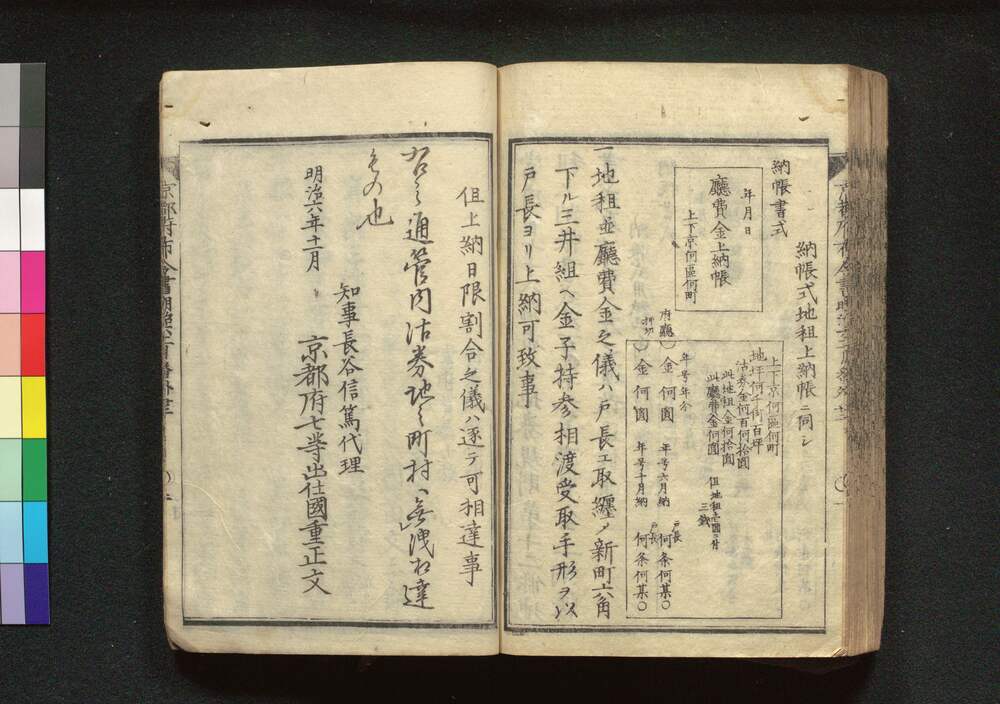 納帳式地租上納帳ニ同シ
納帳書式
年月日
廳費金上納帳
上下京何區何町
上下京何區何町
地坪何千何百坪
沽券金何百何拾圓
此地租金何拾圓
此廳費金何圓
但地租壱圓ニ付
三銭
年号年分
金何圓 年号六月納 戸長 何条何某〇
府廳〇
押切〇
金何圓 年号十月納 戸長 何条何某〇
一地租並廳費金之儀ハ戸長ニ取纏メ新町六角
下ル三井組ヘ金子持参相渡受取手形ヲ以
戸長ヨリ上納可致事
但上納日限割合之儀ハ逐テ可相達事
右之通管内沽券地之町村ヘ無洩相達
もの也
明治六年十一月
知事長谷信篤代理
京都府七等出仕國重正文